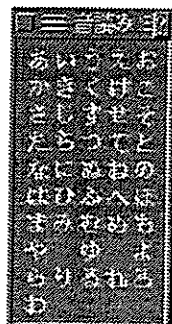 あいうえお
かきくけこ
さしすせそ
たちつてと
なにぬねの
はひふへほ
まみむめも
や ゆ よ
らりるれろ
わ